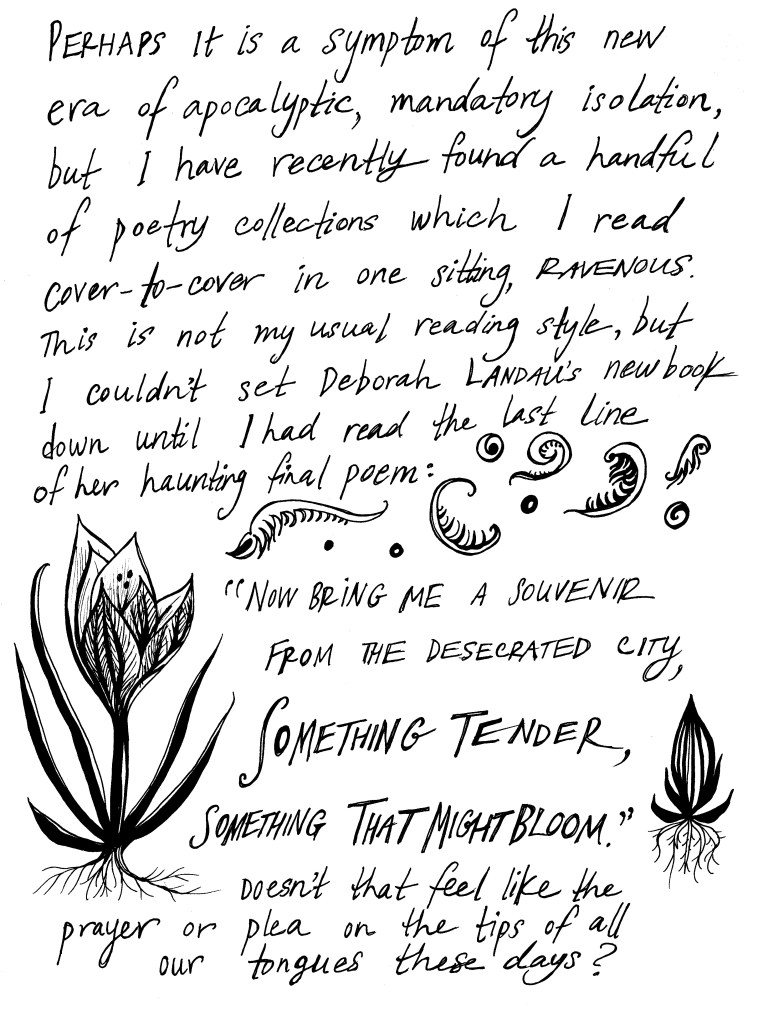 PERHAPS It is a symptom of this new
era of apocalyptic, mandatory isolation,
but I have recently found a handful
of poetry collections which I read
cover-to-cover in one sitting, RAVENOUS.
This is not my usual reading style, but
I couldn't set Deborah LANDAU'S new book
down until I had read the last line
of her haunting final poem:
"NOW BRING ME A SOUVENIR
FROM THE DESECRATED CITY,
SOMETHING TENDER,
SOMETHING THAT MIGHT BLOOM."
Doesn't that feel like the
prayer or plea on the tips of all
our tongues these days?